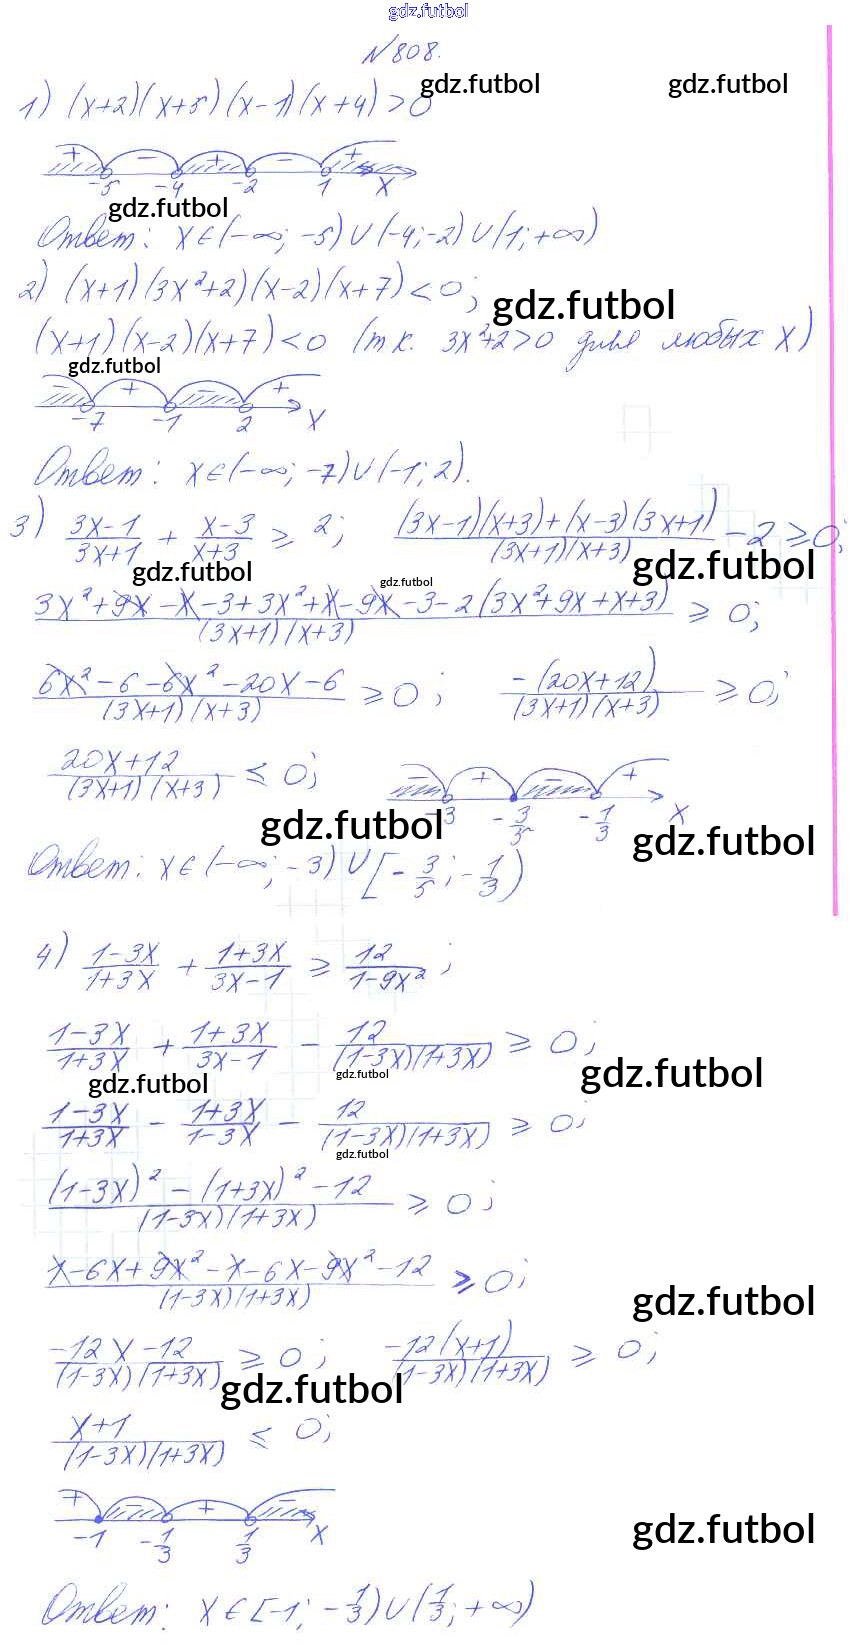 gdz.futbol
N 808.
1) (x+2)(x+5)(x-1)(x+4)>0
gdz.futbol gdz.futbol
+ − + − +
-5 -4 -2 1 x
gdz.futbol
Ответ: x∈(-∞; -5)∪(-4;-2)∪(1;+∞)
2) (x+1)(3x²+2)(x-2)(x+7)<0;
gdz.futbol
(x+1)(x-2)(x+7)<0 (т.к. 3x²+2>0 для любых x)
gdz.futbol
− + − +
-7 -1 2 x
Ответ: x∈(-∞; -7)∪(-1; 2).
3) (3x-1)/(3x+1) + (x-3)/(x+3) ≥ 2; ((3x-1)(x+3)+(x-3)(3x+1))/((3x+1)(x+3)) -2≥0;
gdz.futbol gdz.futbol gdz.futbol
(3x²+9x-x-3+3x²+x-9x-3-2(3x²+9x+x+3))/((3x+1)(x+3)) ≥ 0;
(6x²-6-6x²-20x-6)/((3x+1)(x+3)) ≥0; (-(20x+12))/((3x+1)(x+3)) ≥0;
(20x+12)/((3x+1)(x+3)) ≤ 0; − + − +
-3 -3/5 -1/3 x
gdz.futbol gdz.futbol
Ответ: x∈(-∞; -3)∪[-3/5; -1/3)
4) (1-3x)/(1+3x) + (1+3x)/(3x-1) ≥ 12/(1-9x²);
(1-3x)/(1+3x) + (1+3x)/(3x-1) - 12/((1-3x)(1+3x)) ≥ 0;
gdz.futbol gdz.futbol gdz.futbol
(1-3x)/(1+3x) - (1+3x)/(1-3x) - 12/((1-3x)(1+3x)) ≥ 0;
gdz.futbol
((1-3x)²-(1+3x)²-12)/((1-3x)(1+3x)) ≥ 0;
(1-6x+9x²-1-6x-9x²-12)/((1-3x)(1+3x)) ≥0;
gdz.futbol
(-12x-12)/((1-3x)(1+3x)) ≥ 0; (-12(x+1))/((1-3x)(1+3x)) ≥ 0;
gdz.futbol
(x+1)/((1-3x)(1+3x)) ≤ 0;
+ − + −
-1 -1/3 1/3 x
gdz.futbol
Ответ: x∈[-1; -1/3)∪(1/3; +∞)